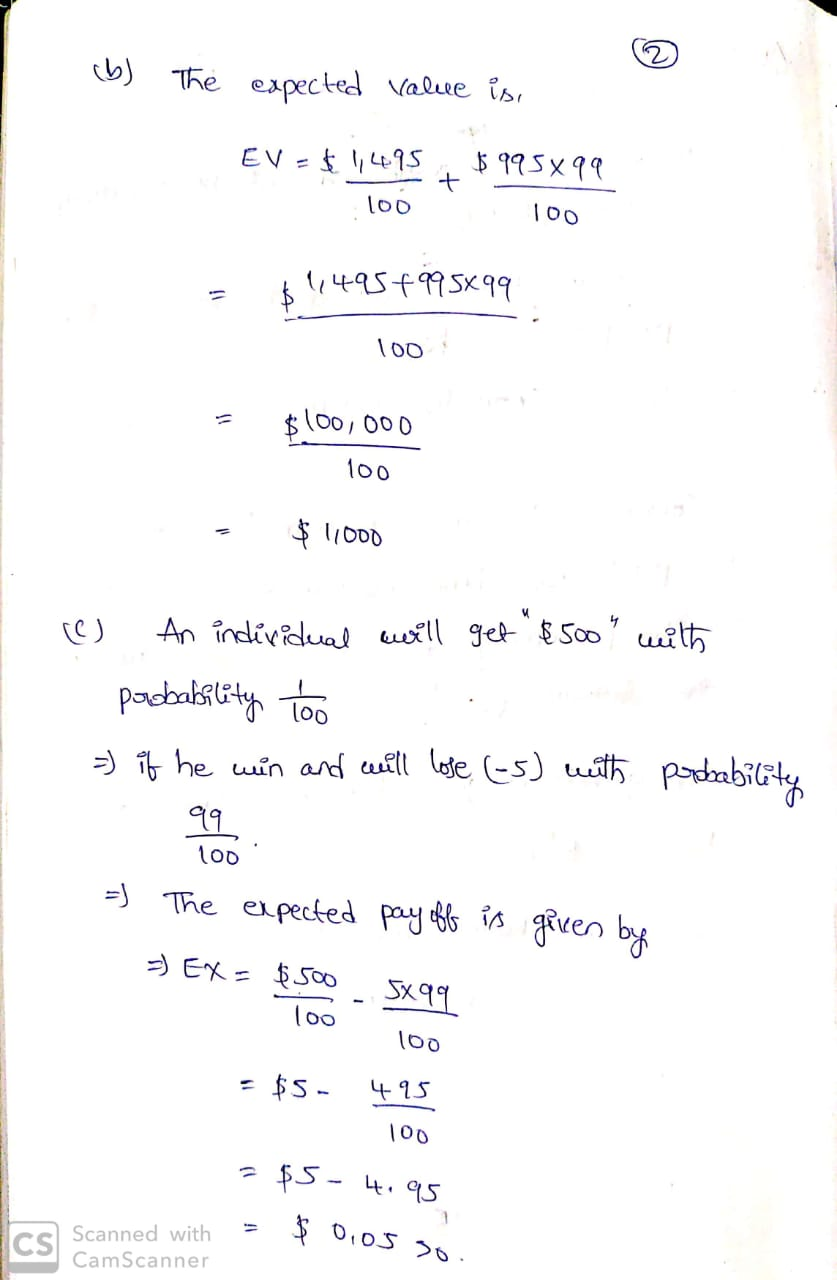 (2)
(b) The expected value is,
EV = $ 1,495 / 100 + $ 995 x 99 / 100
= $ 1,495 + 995 x 99 / 100
= $100,000 / 100
= $ 1,000
(c) An individual will get "$500" with
probability 1/100
=) if he win and will lose (-5) with probability
99/100.
=) The expected pay off is given by
=) EX = $500 / 100 - 5x99 / 100
= $5 - 495 / 100
= $5 - 4.95
= $ 0.05 >0.
CS Scanned with
CamScanner